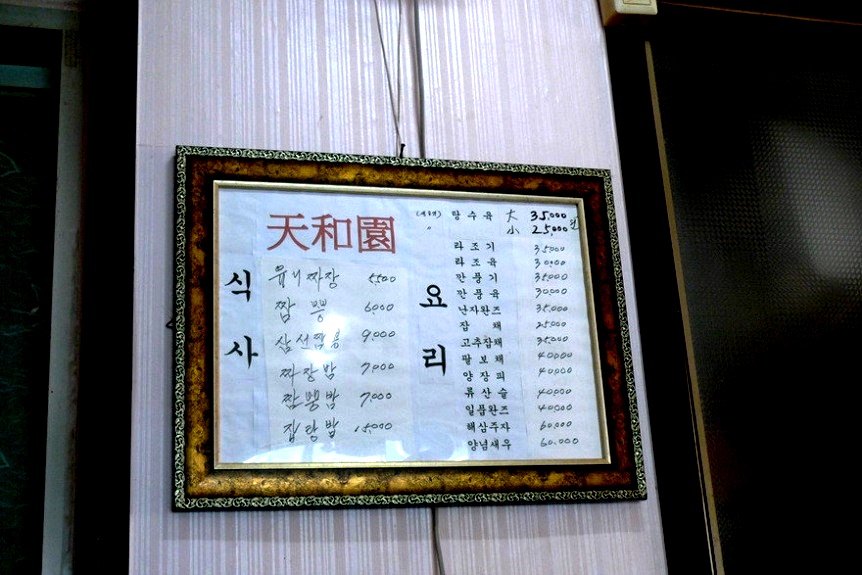 天和園
식사
유니짜장 5500
짬뽕 6000
삼선짬뽕 9.000
짜장밥 7000
짬뽕밥 7000
잡탕밥 15000
요리
탕수육 大 35.000원
〃 小 25.000
라조기 35000
라조육 30000
깐풍기 35000
깐풍육 30.000
난자완즈 35.000
잡채 25000
고추잡채 35.000
팔보채 40000
양장피 40.000
류산슬 40000
일품완즈 40000
해삼주자 60.000
양념새우 60.000